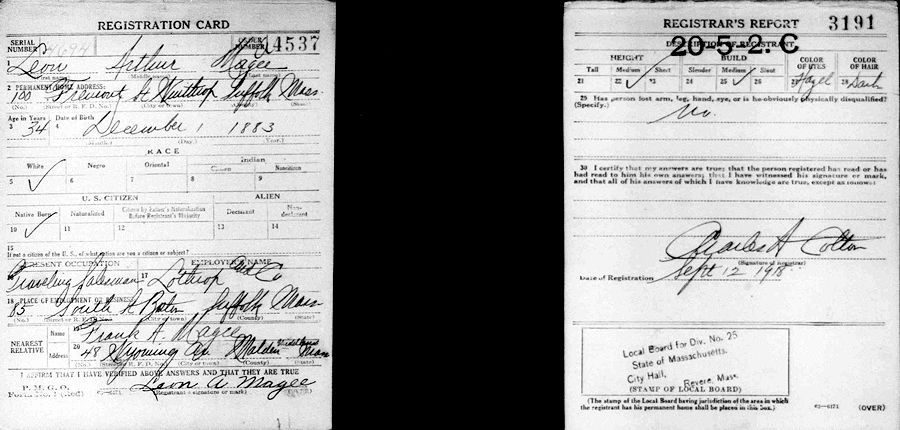 REGISTRATION CARD
SERIAL NUMBER 4694 ORDER NUMBER 4537
1 Leon Arthur Magee
(Middle name) (Last name)
2 PERMANENT HOME ADDRESS:
100 Fremont St Winthrop Suffolk Mass
(No.) (Street or R. F. D. No.) (City or town) (County) (State)
Age in Years Date of Birth
3 34 4 December 1 1883
(Month.) (Day.) (Year.)
RACE
White Negro Oriental Indian
Citizen Noncitizen
5 ✓ 6 7 8 9
U. S. CITIZEN ALIEN
Native Born Naturalized Citizen by Father's Naturalization Before Registrant's Majority Declarant Non-declarant
10 ✓ 11 12 13 14
15
If not a citizen of the U. S., of what nation are you a citizen or subject?
PRESENT OCCUPATION EMPLOYER'S NAME
16 Traveling Salesman 17 Lothrop Co
18 PLACE OF EMPLOYMENT OR BUSINESS:
85 South St Boston Suffolk Mass
(No.) (Street or R. F. D. No.) (City or town) (County) (State)
NEAREST RELATIVE
Name 19 Frank A. Magee
Address 20 48 Wyoming Av Malden Middlesex Mass
(No.) (Street or R. F. D. No.) (City or town) (County) (State)
I AFFIRM THAT I HAVE VERIFIED ABOVE ANSWERS AND THAT THEY ARE TRUE
P. M. G. O.
Form No. 1 (Red) Leon A. Magee
(Registrant's signature or mark) (OVER)
REGISTRAR'S REPORT 3191
20-5-2. C
DESCRIPTION OF REGISTRANT
HEIGHT BUILD COLOR OF EYES COLOR OF HAIR
Tall Medium Short Slender Medium Stout
21 22 ✓ 23 24 25 ✓ 26 27 Hazel 28 Dark
29 Has person lost arm, leg, hand, eye, or is he obviously physically disqualified?
(Specify.) No.
30 I certify that my answers are true; that the person registered has read or has
had read to him his own answers; that I have witnessed his signature or mark,
and that all of his answers of which I have knowledge are true, except as follows:
Charles A Colton
(Signature of Registrar)
Date of Registration Sept 12 1918
Local Board for Div. No. 25
State of Massachusetts.
City Hall,
Revere, Mass.
(STAMP OF LOCAL BOARD)
(The stamp of the Local Board having jurisdiction of the area in which
the registrant has his permanent home shall be placed in this box.)
63-6171 (OVER)